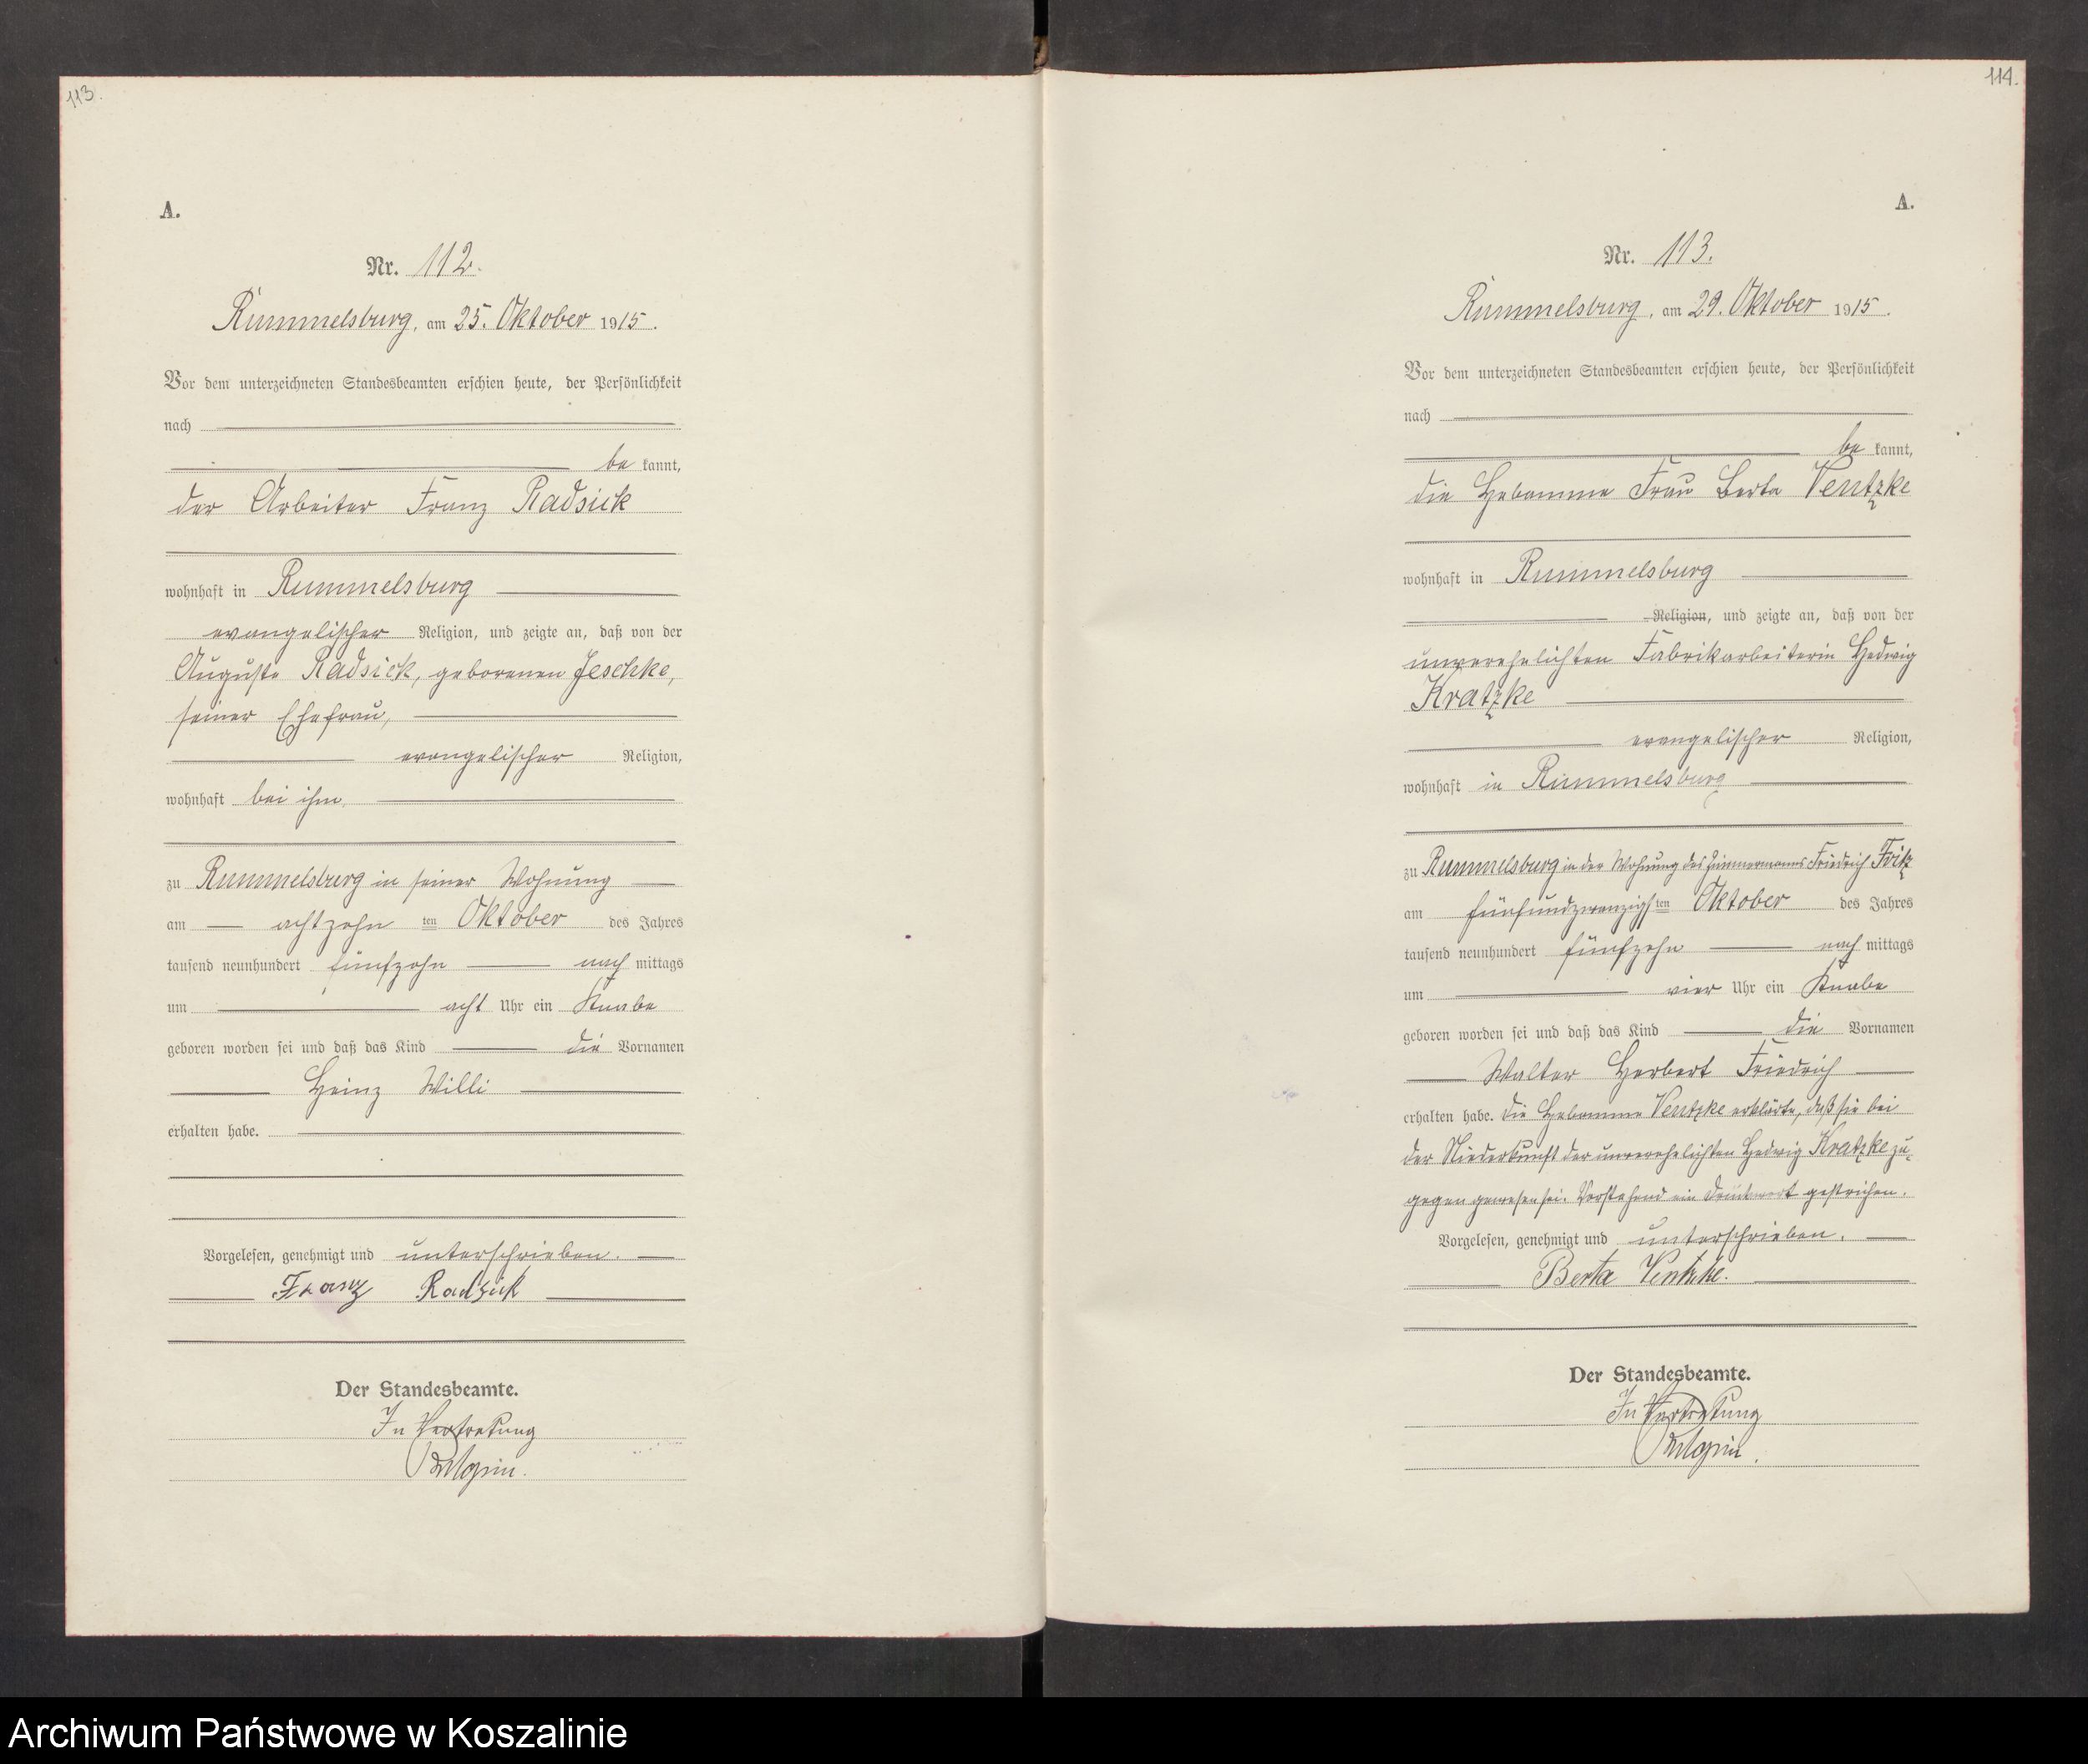 113.
A.
Nr. 112.
Rummelsburg, am 25. Oktober 1915.
Vor dem unterzeichneten Standesbeamten erschien heute, der Persönlichkeit
nach
be kannt,
der Arbeiter Franz Radsick
wohnhaft in Rummelsburg
evangelischer Religion, und zeigte an, daß von der
Auguste Radsick, geborenen Jeschke,
seiner Ehefrau,
evangelischer Religion,
wohnhaft bei ihm
zu Rummelsburg in seiner Wohnung
am achtzehn ten Oktober des Jahres
tausend neunhundert fünfzehn nach mittags
um acht Uhr ein Knabe
geboren worden sei und daß das Kind die Vornamen
Heinz Willi
erhalten habe.
Vorgelesen, genehmigt und unterschrieben.
Franz Radsick
Der Standesbeamte.
In Vertretung
114.
A.
Nr. 113.
Rummelsburg, am 29. Oktober 1915.
Vor dem unterzeichneten Standesbeamten erschien heute, der Persönlichkeit
nach
be kannt,
die Hebamme Frau Berta Ventzke
wohnhaft in Rummelsburg
Religion, und zeigte an, daß von der
unverehelichten Fabrikarbeiterin Hedwig
Kratzke
evangelischer Religion,
wohnhaft in Rummelsburg
zu Rummelsburg in der Wohnung des Zimmermanns Friedrich Fritz
am fünfundzwanzigsten Oktober des Jahres
tausend neunhundert fünfzehn nach mittags
um vier Uhr ein Knabe
geboren worden sei und daß das Kind die Vornamen
Walter Herbert Friedrich
erhalten habe. Die Hebamme Ventzke erklärte, daß sie bei
der Niederkunft der unverehelichten Hedwig Kratzke zu-
gegen gewesen sei. Vorstehend ein Druckwort gestrichen.
Vorgelesen, genehmigt und unterschrieben.
Berta Ventzke.
Der Standesbeamte.
In Vertretung
Archiwum Państwowe w Koszalinie